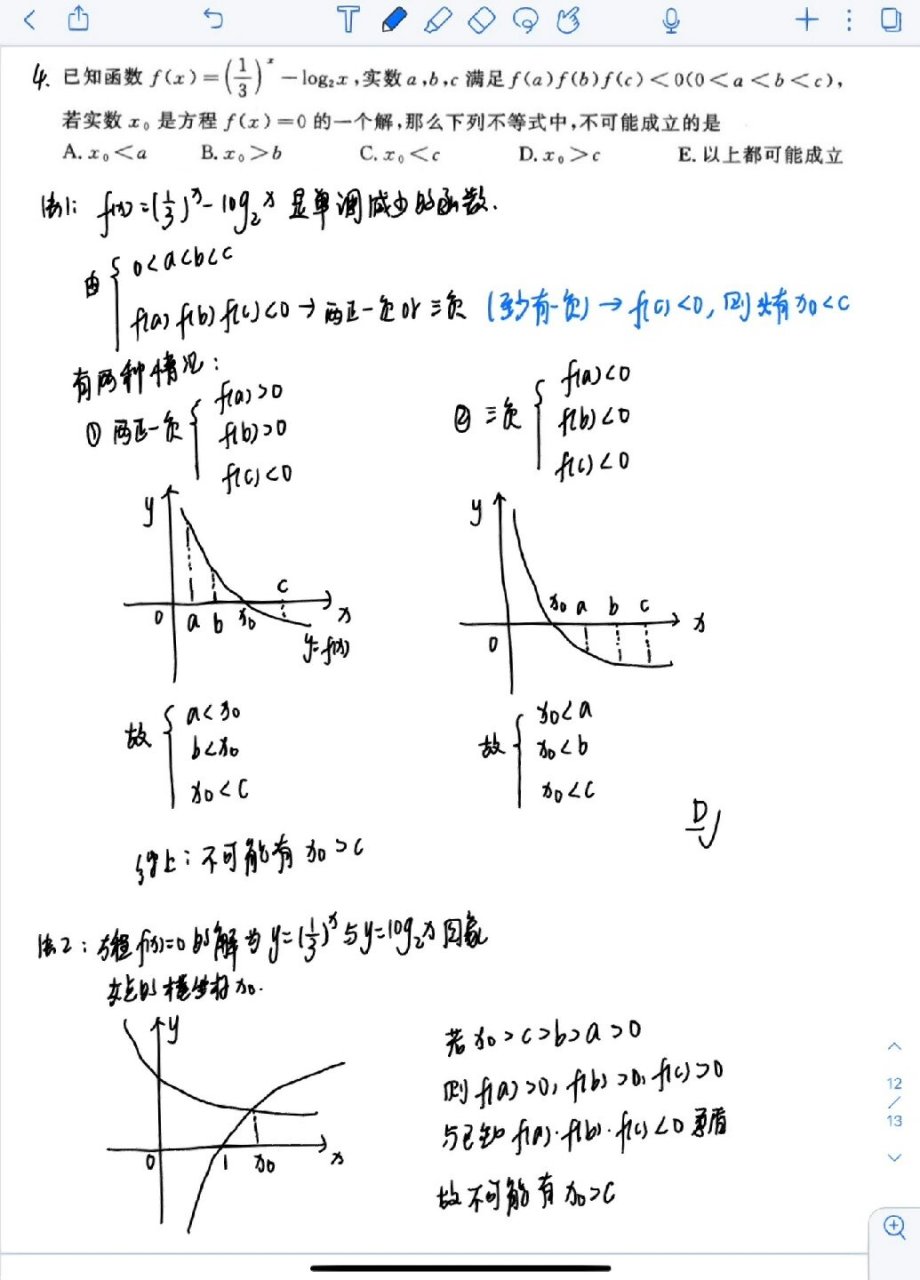 4. 已知函数 f(x)=(1/3)^x－log₂x,实数 a,b,c 满足 f(a)f(b)f(c)<0(0<a<b<c),
若实数 x₀ 是方程 f(x)=0 的一个解,那么下列不等式中,不可能成立的是
A. x₀<a B. x₀>b C. x₀<c D. x₀>c E. 以上都可能成立
法1: f(x)=(1/3)^x-log₂x 是单调减少的函数.
由 { 0<a<b<c
f(a)f(b)f(c)<0→两正一负or三负 (至少有一负)→f(c)<0,则必有x₀<c
有两种情况:
① 两正一负 { f(a)>0
f(b)>0
f(c)<0
② 三负 { f(a)<0
f(b)<0
f(c)<0
y
c
0 a b x₀ x
y=f(x)
y
x₀ a b c x
0
故 { a<x₀
b<x₀
x₀<c
故 { x₀<a
x₀<b
x₀<c
D
综上:不可能有 x₀>c
法2: 方程f(x)=0的解为y=(1/3)^x与y=log₂x图象
交点的横坐标x₀.
y
0 1 x₀ x
若x₀>c>b>a>0
则f(a)>0, f(b)>0, f(c)>0
与已知f(a)·f(b)·f(c)<0矛盾
故不可能有x₀>c
12
/
13